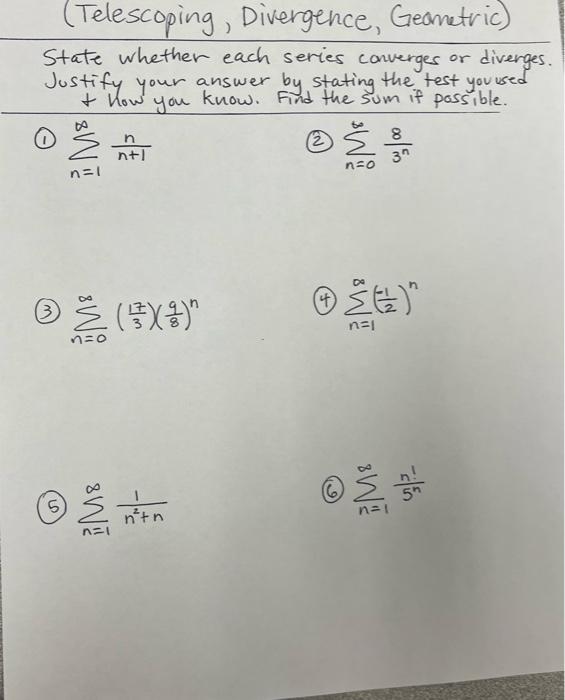 (Telescoping, Divergence, Geometric)
State whether each series converges or diverges.
Justify your answer by stating the test you used
+ how you know. Find the sum if possible.
① ∞ Σ n=1 n/(n+1)
② ∞ Σ n=0 8/3ⁿ
③ ∞ Σ n=0 (17/3)(9/8)ⁿ
④ ∞ Σ n=1 (-1/2)ⁿ
⑤ ∞ Σ n=1 1/(n²+n)
⑥ ∞ Σ n=1 n!/5ⁿ